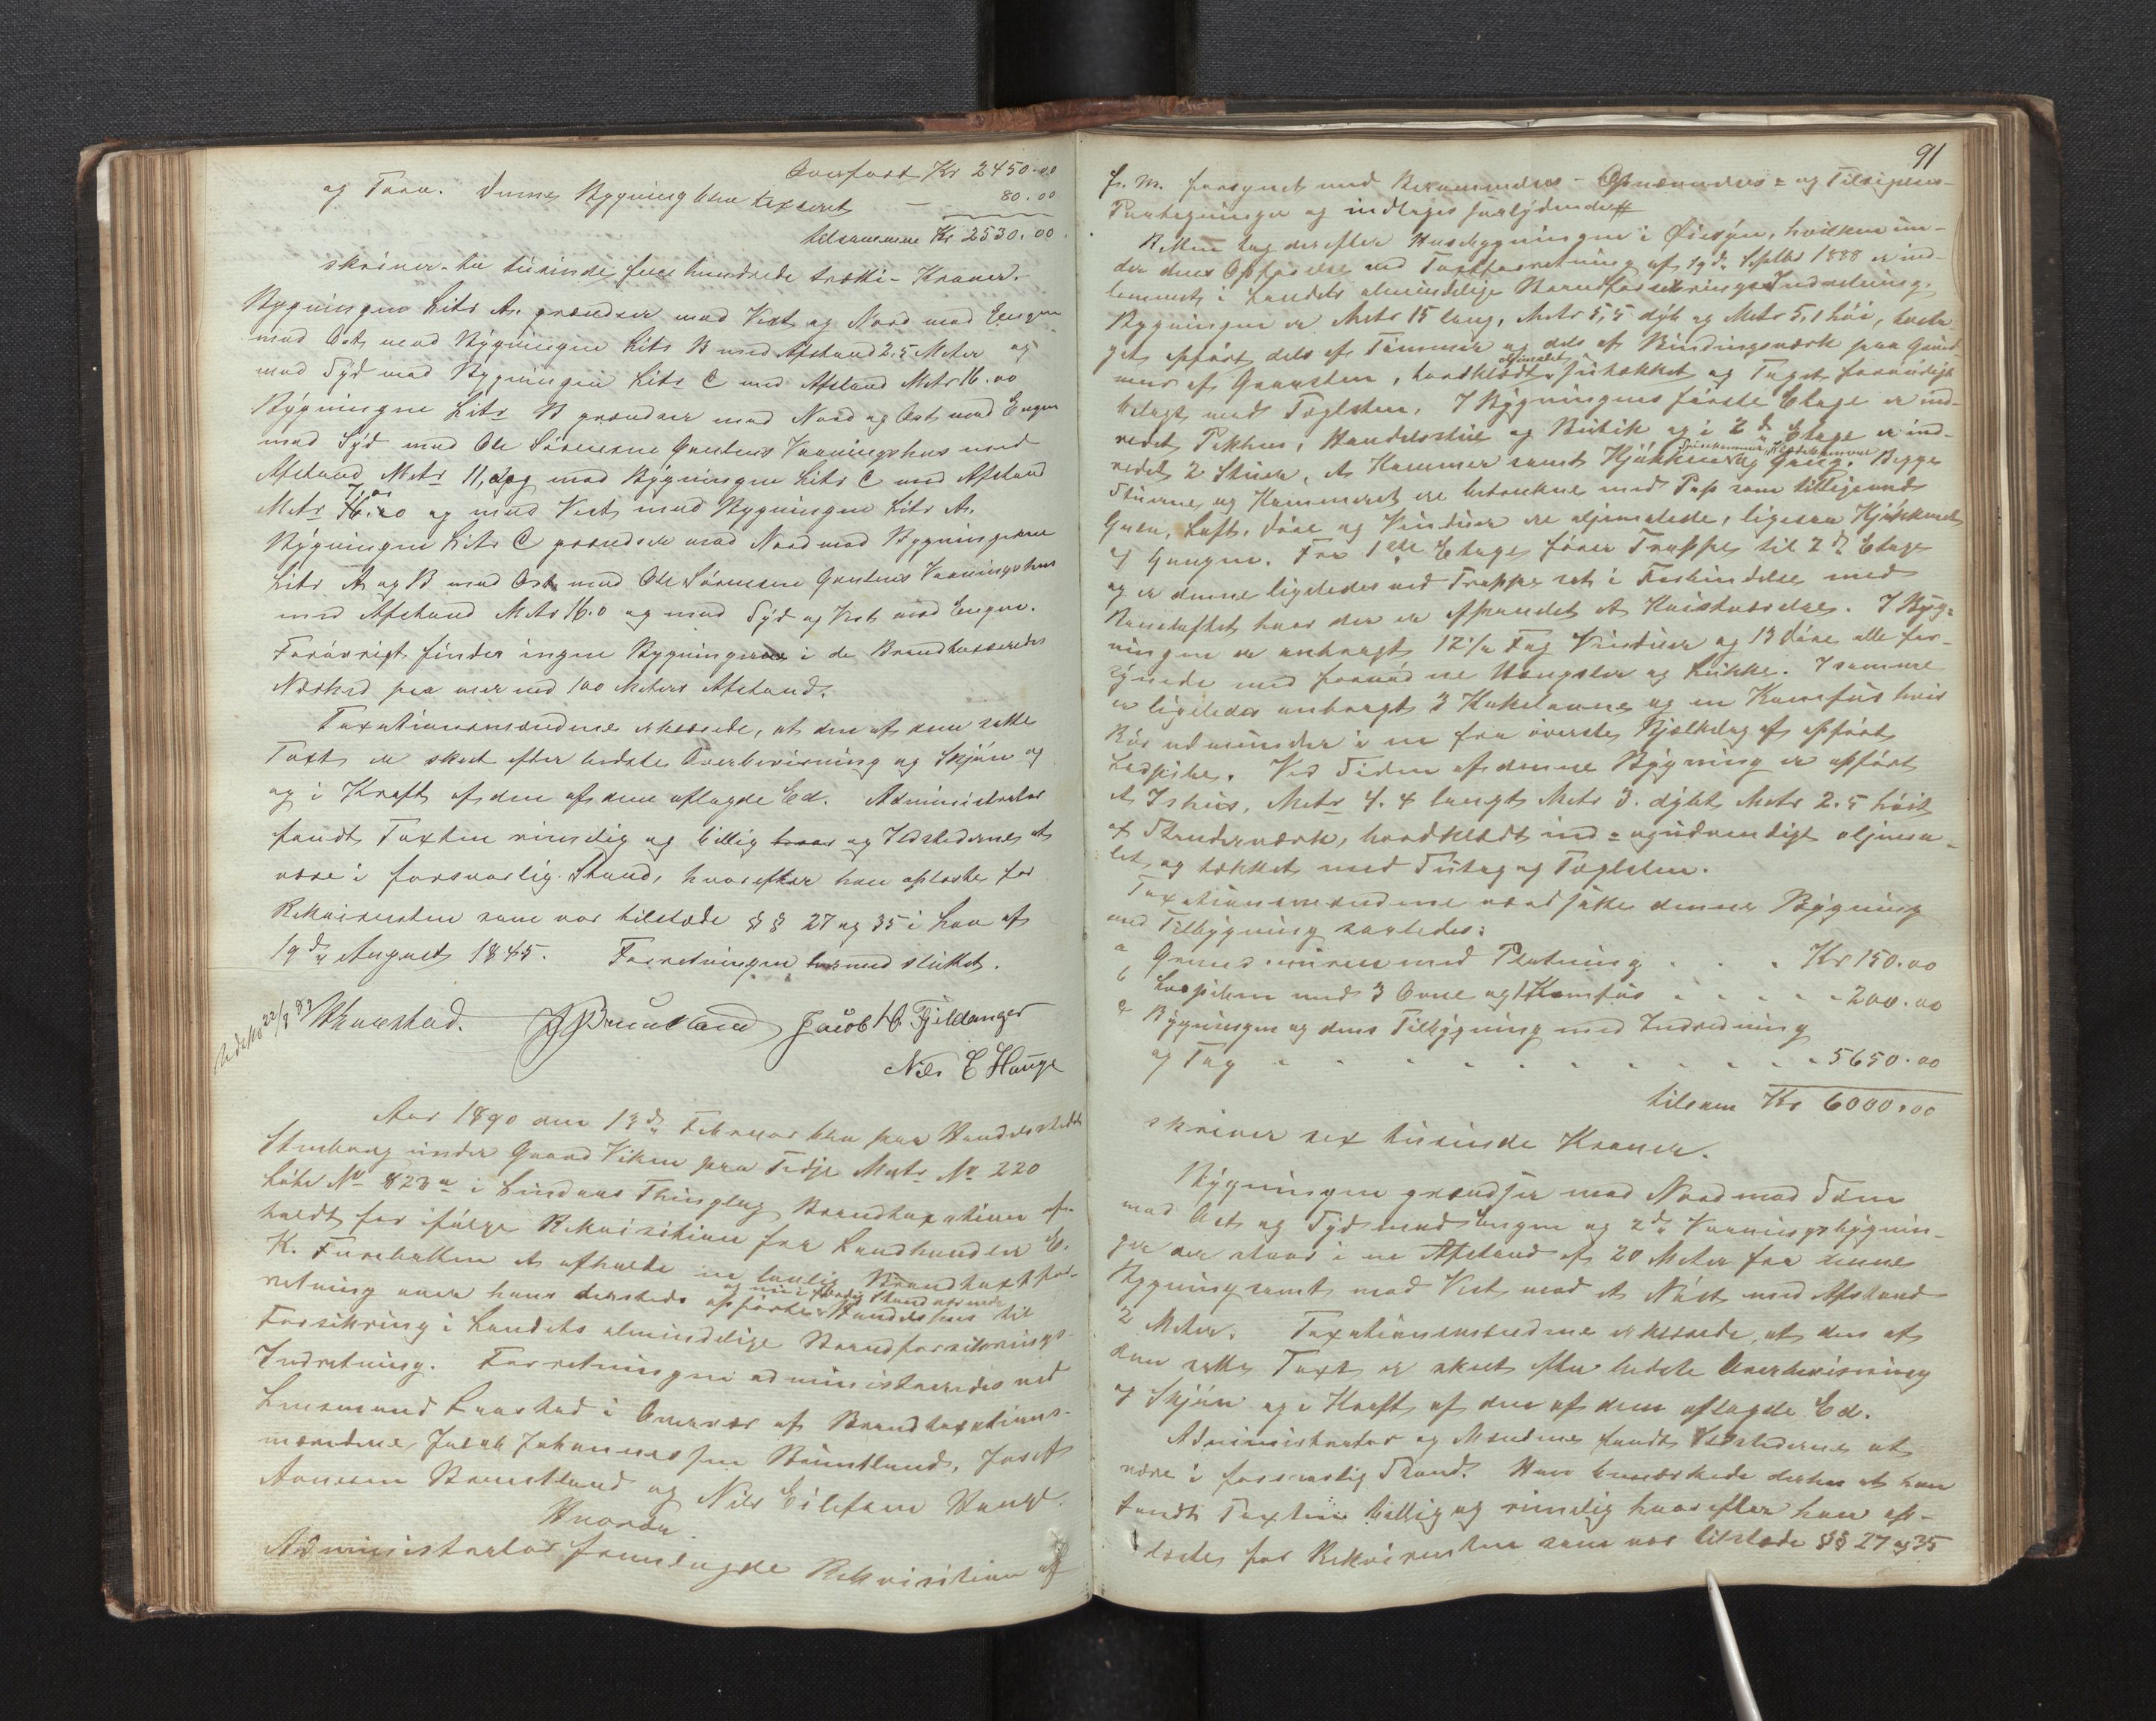 Overført Kr 2450.00
og Taxe. Denne Bygning blev taxeret — 80.00
tilsammen Kr 2530.00.
skriver to tusinde fem hundrede tretti Kroner.
Bygningen Litr A. grændser mod Vest og Nord mod Engen
mod Ost mod Bygningen Litr B med Afstand 2.5 Meter og
mod Syd mod Bygningen Litr C med Afstand Metr 16.00
Bygningen Litr B grændser mod Nord og Ost mod Engen
mod Syd mod Ole Sörensens Vaaningshus med
Afstand Metr 11, og mod Bygningen Litr C med Afstand
Metr og mod Vest mod Bygningen Litr A.
Bygningen Litr C grændser mod Nord mod Bygningerne
Litr A og B mod Ost mod Ole Sörensens Vaaningshus
med Afstand Metr 16.0 og mod Syd og Vest mod Engen.
Forövrigt findes ingen Bygninger i de Brandtaxeredes
Nærhed paa mer end 100 Meters Afstand.
Taxationsmændene erklærede, at den af dem satte
Taxt er skeet efter bedste Overbevisning og Skjön og
og i Kraft af den af dem aflagde Ed. Administrator
fandt Taxten rimelig og billig og Ildstederne at
være i forsvarlig Stand, hvorefter han oplæste for
Rekvirenten som var tilstede §§ 27 og 35 i Lov af
19de August 1845. Forretningen hermed sluttet.
Jacob H Fjeldanger
Nils E Hauge
Aar 1890 den 13de Februar blev paa Handelsstedet
under Gaard Viken paa Fedje Matr No 220
Löbe No 823a i Lindaas Thinglag Brandtaxation af-
holdt for ifölge Rekvisition fra Landhandler E.
K. at afholde en lovlig Brandtaxtfor-
og nu i færdig Stand værende
retning over hans dersteds opförte Handelshus til
Forsikring i Landets almindelige Brandforsikrings-
Indretning. Forretningen administreredes ved
Lensmand i Overvær af Brandtaxations-
mændene, Jakob Johannessen Bruntland, Josef
Arnesen Bruntland og Nils Eilefsen Hauge.
Hvorda
Administrator fremlagde Rekvisition af
91
f. M. forsynet med Berammelses- Opnævnelses- og Tilsigelses-
Paategninger og indtages saalydende #
Retten tog derefter Husbygningen i Öiesyn, hvilken un-
der dens Opförelse ved Taxtforretning af 19de Septbr 1888 er ind-
lemmet i Landets almindelige Brandforsikrings Indretning.
Bygningen er Metr 15 lang, Metr 5,5 dyb og Metr 5,1 höi, toeta-
ges opfört dels af Tömmer og dels af Bindingsværk paa Grund-
oljemalet
mur af Graasten, bordklædt, og Taget forsvarligt
belagt med Taglsten. I Bygningens förste Etage er ind-
redet Pakhus, Handelsstue og Butik og i 2de Etage er ind-
Spisekammer, Klædekammer
redet 2 Stuer, et Kammer samt Kjökken og Gang. Begge
Stuerne og Kammeret er betrukne med Pap som tilligemed
Gulv, Loft, Döre og Vinduer ere oljemalede, ligesaa Kjökkenet
og Gangen. Fra 1ste Etage förer Trappe til 2de Etage
og er denne ligeledes ved Trappe sat i Forbindelse med
loftet hvor der er afpandet et Kvistværelse. I Byg-
ningen er anbragt 12½ Fag Vinduer og 13 Döre alle for-
synede med fornödne Hængsler og Lukke. I samme
er ligeledes anbragt 3 Kakelovne og en Komfur hvis
Rör udmunder i en fra överste Bjelkelag af opfört
Ludpibe. Ved Siden af denne Bygning er opfört
et Ishus, Metr 4.4 langt Metr 3. dybt Metr 2.5 höit
af Stenderværk, bordklædt ind- og udvendigt oljema-
let og tækket med Sutag og Taglsten.
Taxationsmændene værdsatte denne Bygning
med Tilbygning saaledes:
a Grundmuren med Platning . . . Kr 150.00
b Ludpiben med 3 Ovne og 1 Komfur . . . . . 200.00
c Bygningen og dens Tilbygning med Indredning
og Tag . . . . . . . . . . . 5650.00
tilsam Kr 6000.00
skriver sex tusinde Kroner.
Bygningen grændser mod Nord mod Söen
mod Ost og Syd mod Engen og 2de Vaaningsbygnin-
ger der staar i en Afstand af 20 Meter fra denne
Bygning samt mod Vest mod et Nöst med Afstand
2 Meter. Taxationsmændene erklærede, at den af
dem satte Taxt er skeet efter bedste Overbevisning
og Skjön og i Kraft af den af dem aflagde Ed.
Administrator og Mændene fandt Ildstederne at
være i forsvarlig Stand. Han bemærkede derhos at han
fandt Taxten billig og rimelig hvorefter han op-
læste for Rekvirenten som var tilstede §§ 27 og 35